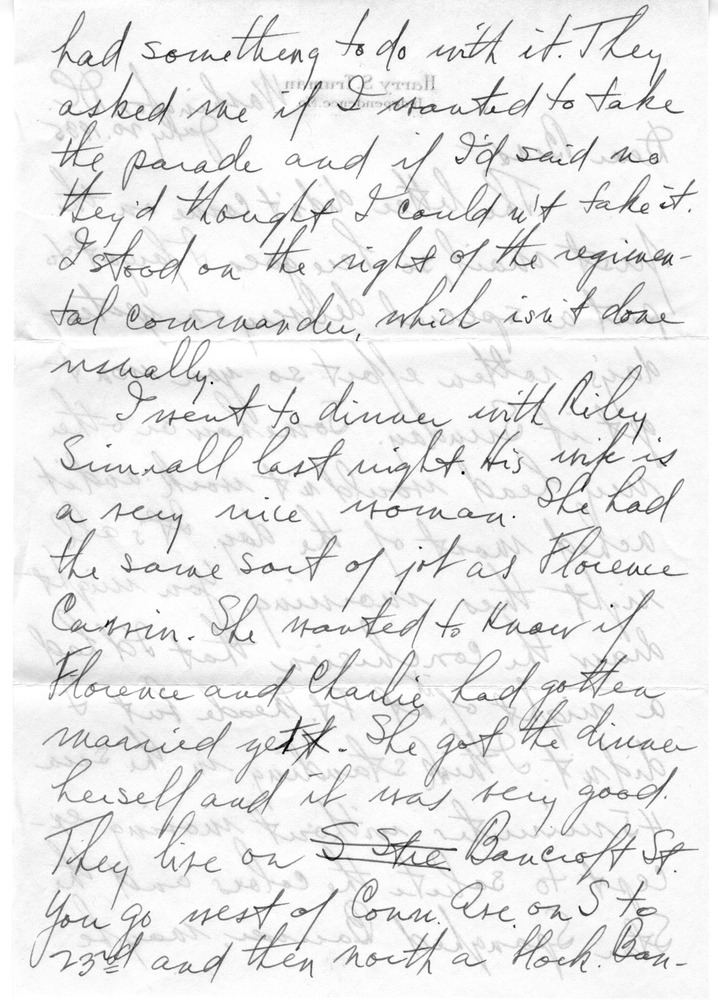 had something to do with it. They
asked me if I wanted to take
the parade and if I'd said no
they'd thought I couldn't take it.
I stood on the right of the regimen-
tal commander, which isn't done
usually.
I went to dinner with Riley
Simrall last night. His wife is
a very nice woman. She had
the same sort of job as Florence
She wanted to know if
Florence and Charlie had gotten
married yet. She got the dinner
herself and it was very good.
They live on S Stre Bancroft St.
You go west of Conn. Ave. on S to
23rd and then north a block. Ban-